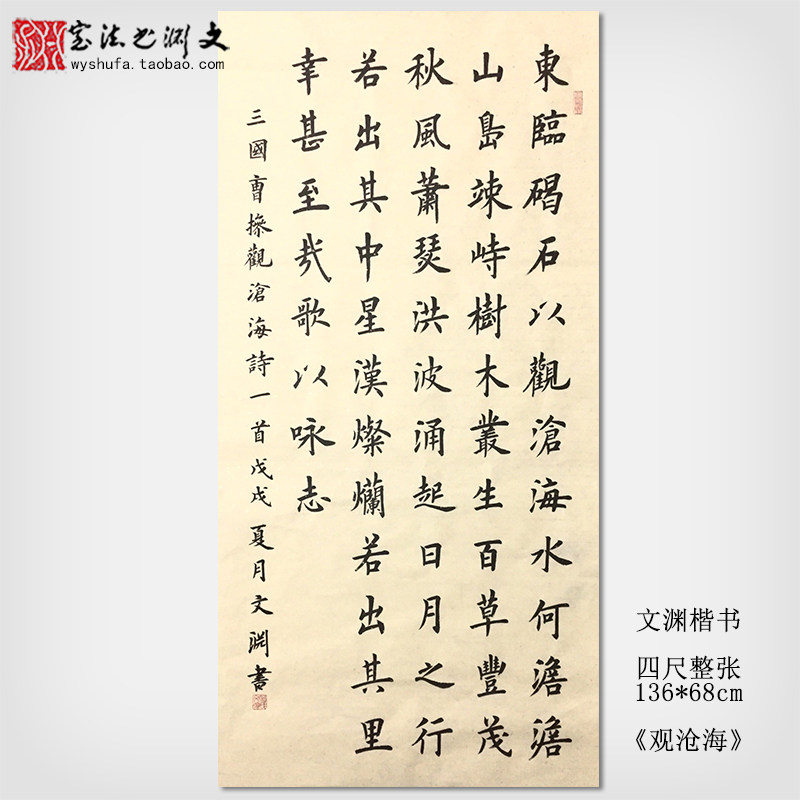 文渊书法
wyshufa.taobao.com
東臨碣石以觀滄海水何澹澹
山島竦峙樹木叢生百草豐茂
秋風蕭瑟洪波涌起日月之行
若出其中星漢燦爛若出其里
幸甚至哉歌以咏志
三國曹操觀滄海詩一首戊戌夏月文渊書
文渊楷书
四尺整张
136*68cm
《观沧海》